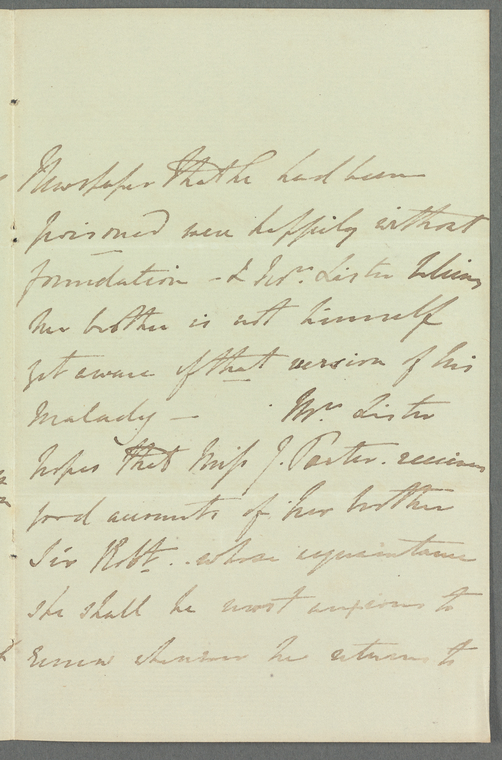 Newspaper that he had been
poisoned were happily without
foundation - & Mrs. Lister believes
her brother is not himself
yet aware of that version of his
malady - Mrs Lister
hopes that Miss J. Porter. receives
good accounts of her brother
Sir Robt. . whose acquaintance
she shall be most anxious to
renew whenever he returns to